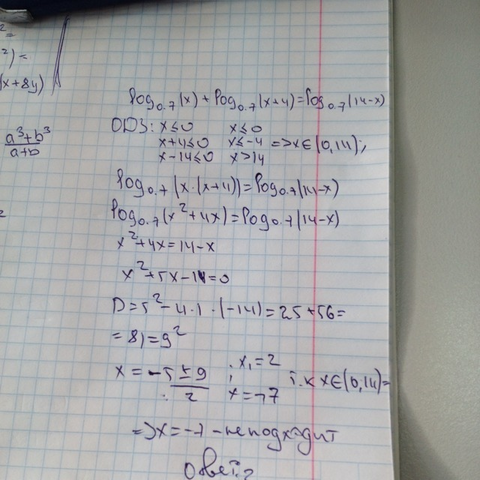 x+8y)
a³+b³
a+b
log₀.₇(x)+log₀.₇(x+4)=log₀.₇(14-x)
ОДЗ: x≤0 x≤0
x+4≤0 x≤-4 =>x∈(0,14);
x-14≤0 x>14
log₀.₇(x·(x+4))=log₀.₇(14-x)
log₀.₇(x²+4x)=log₀.₇(14-x)
x²+4x=14-x
x²+5x-14=0
D=5²-4·1·(-14)=25+56=
=81=9²
x=-5±9/2 ; x₁=2 x=-7 т.к x∈(0,14)=
=>x=-7-не подходит
Ответ:2